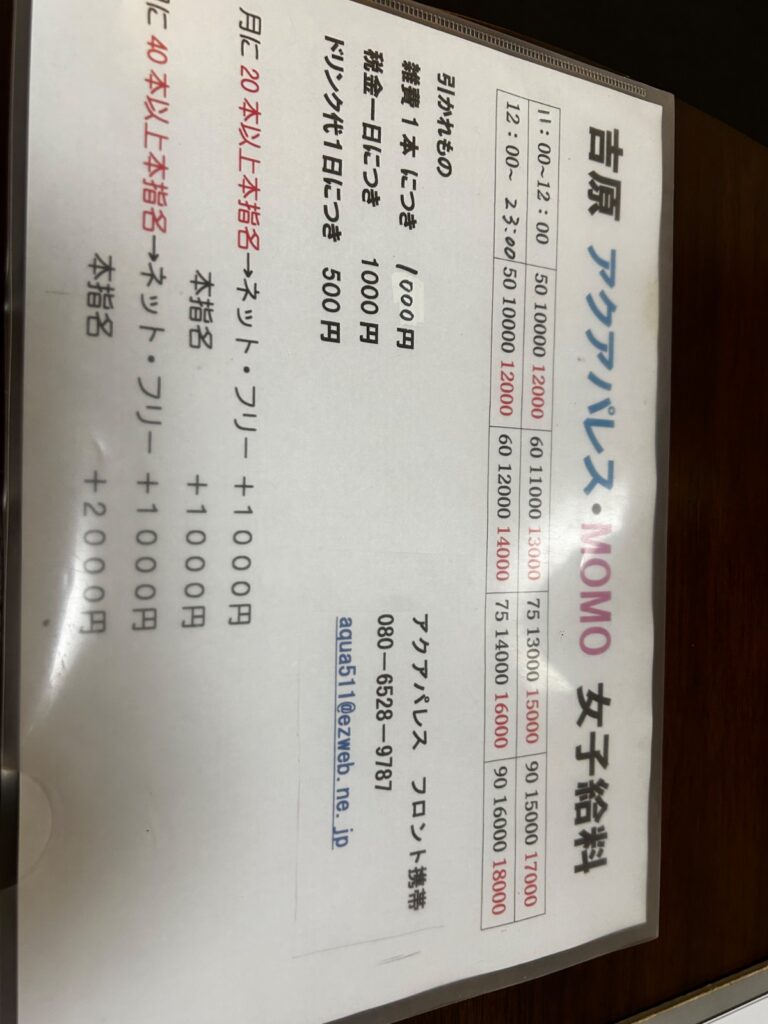 吉原 アクアパレス・MOMO 女子給料
11:00~12:00 50 10000 12000 60 11000 13000 75 13000 15000 90 15000 17000
12:00~ 23:00 50 10000 12000 60 12000 14000 75 14000 16000 90 16000 18000
引かれもの
雑費1本 につき 1000円
税金一日につき 1000円
ドリンク代1日につき 500円
アクアパレス フロント携帯
080－6528－9787
aqua511@ezweb.ne.jp
月に 20本以上本指名→ネット・フリー ＋1000円
本指名 ＋1000円
月に 40本以上本指名→ネット・フリー ＋1000円
本指名 ＋2000円